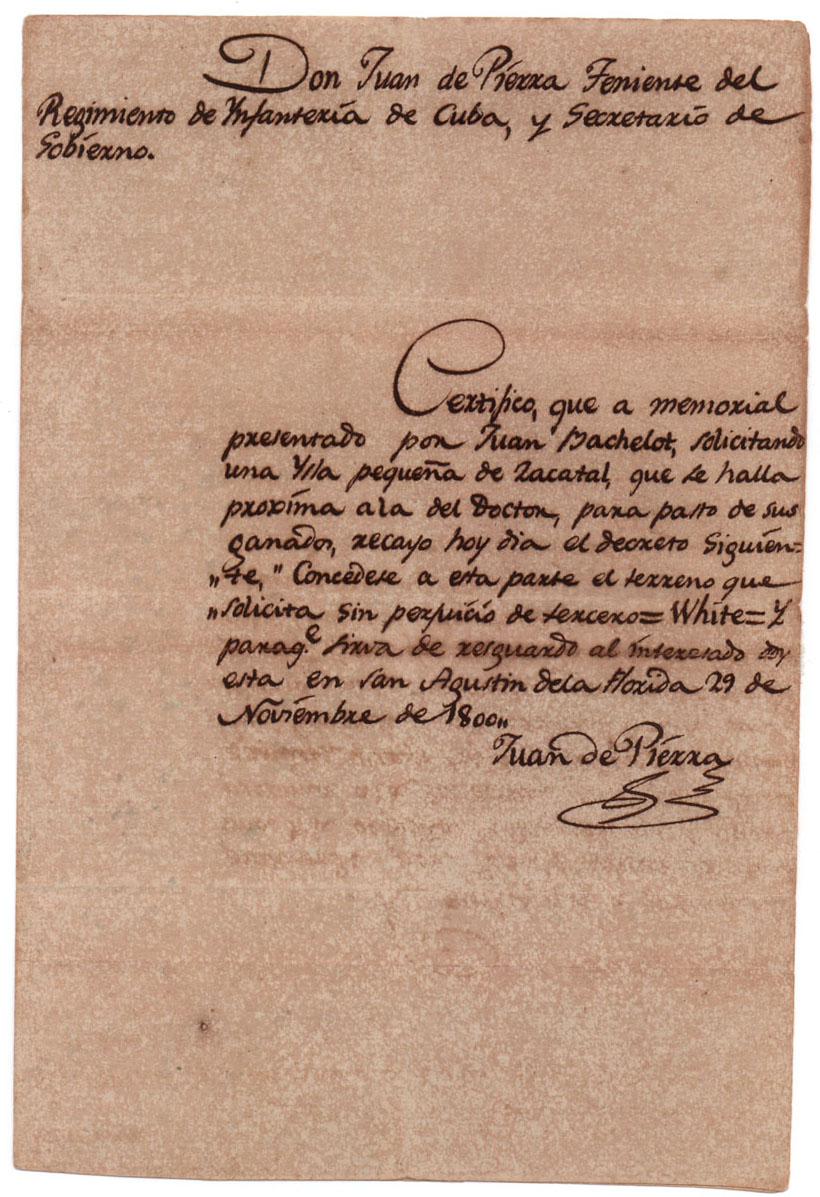 Don Juan de Pierra Teniente del
Regimiento de Ynfanteria de Cuba, y Secretario de
Gobierno.
Certifico, que a memorial
presentado por Juan Bachelot, solicitando
una Ysla pequeña de Zacatal, que se halla
proxima ala del Doctor, para pasto de sus
ganados, recayo hoy dia el decreto siguien=
„te,„ Concedese a esta parte el terreno que
„solicita sin perjuicio de tercero= White= Y
paraq.e sirva de resguardo al interesado doy
esta en san Agustin dela Florida 29 de
Noviembre de 1800„
Juan de Pierra